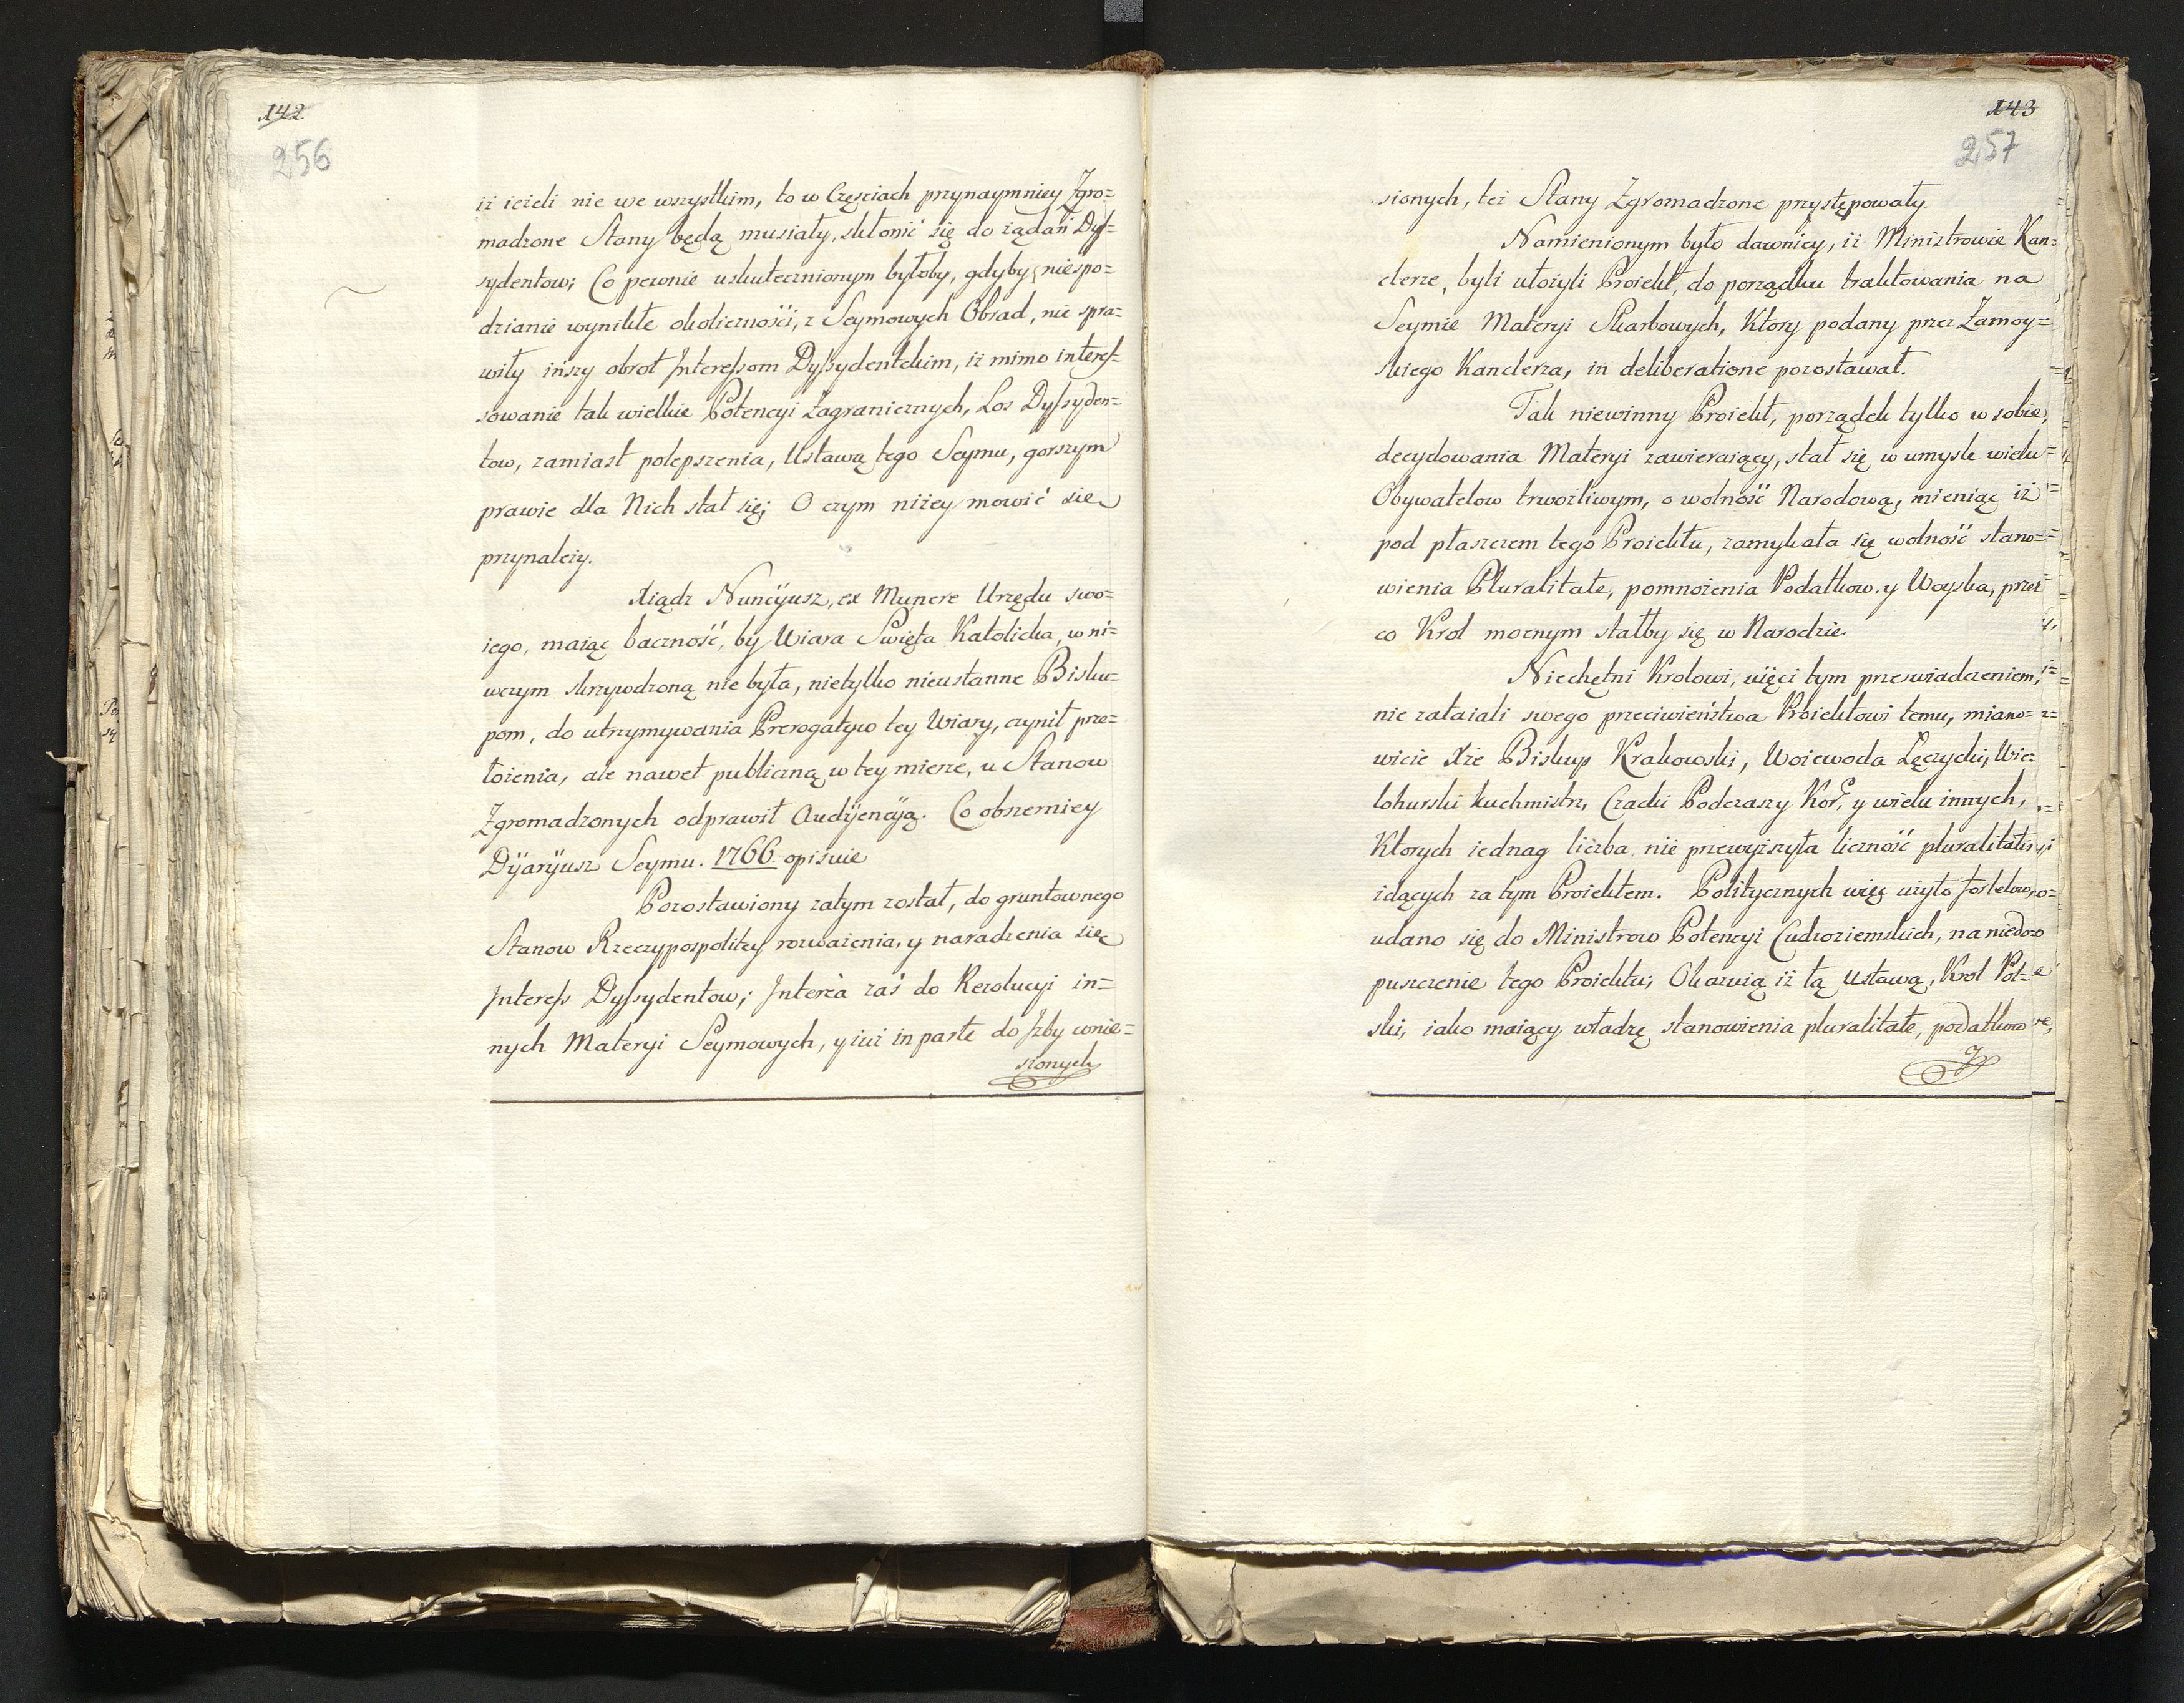 142
256
iż ieżeli nie we wszystkim, to w Częsciach przynaymniey Zgro=
madzone Stany będą musiały, skłonić się do żądań Dyſ=
sydentow; Co pewnie uskutecznionym byłoby, gdyby niespo=
dzianie wynikłe okoliczności, z Seymowych Obrad, nie spra=
wiły inszy obrot Jntereſsom Dyſsydentckim, iż mimo intereſ=
sowanie tak wielkie Potencyi Zagranicznych, Los Dyſsyden=
tow, zamiast polepszenia, Ustawą tego Seymu, gorszym
prawie dla Nich stał się; O czym niżey mowić się
przynależy.
Xiądz Nuncÿusz, ex Munere Urzędu swo=
iego, maiąc baczność, by Wiara Swięta Katolicka, w ni=
wczym skrzywdzoną nie była, nietylko nieustanne Bisku=
pom, do utrzymywania Prerogatyw tey Wiary, czynił prze=
łożenia, ale nawet publiczną w tey mierze, u Stanow
Zgromadzonych odprawił Audÿencÿą. Co obszerniey
Dÿarÿusz Seymu. 1766. opisuie
Pozostawiony zatym został, do gruntownego
Stanow Rzeczypospolitey rozważenia, y naradzenia się
Jntereſs Dyſsydentow; Jnterèa zaś do Rezolucyi in=
nych Materyi Seymowych, y iuż in parte do Jzby wnie=
sionych
143
257
sionych, też Stany Zgromadzone przystępowały.
Namienionym było dawniey, iż Ministrowie Kan=
clerze, byli ułożyli Proiekt, do porządku traktowania na
Seymie Materyi Skarbowych, Ktory podany przez Zamoy=
skiego Kanclerza, in deliberatione pozostawał.
Tak niewinny Proiekt, porządek tylko w sobie,
decydowania Materyi zawieraiący, stał się w umysle wielu
Obywatelow trwożliwym, o wolność Narodową, mieniąc iż
pod płaszczem tego Proiektu, zamykała się wolność stano=
wienia Pluralitate, pomnożenia Podatkow, y Woyska, przez
co Krol mocnym stałby się w Narodzie.
Niechętni Krolowi, ujęci tym przeswiadczeniem,
nie zataiali swego przeciwieństwa Proiektowi temu, miano=
wicie Xże Biskup Krakowski, Woiewoda Łęczycki, Wie=
lohurski kuchmistrz, Czacki Podczaszy Kor: y wielu innych,
Ktorych iednag liczba nie przewyższyła liczność pluralitatis,
idących za tym Proiektem. Politycznych więc użyto fortelow,
udano się do Ministrow Potencyi Cudzoziemskich, na niedo=
puszczenie tego Proiektu; Okazuią iż tą Ustawą, Krol Pol=
ski, iako maiący władzę stanowienia pluralitate, podatkow
y